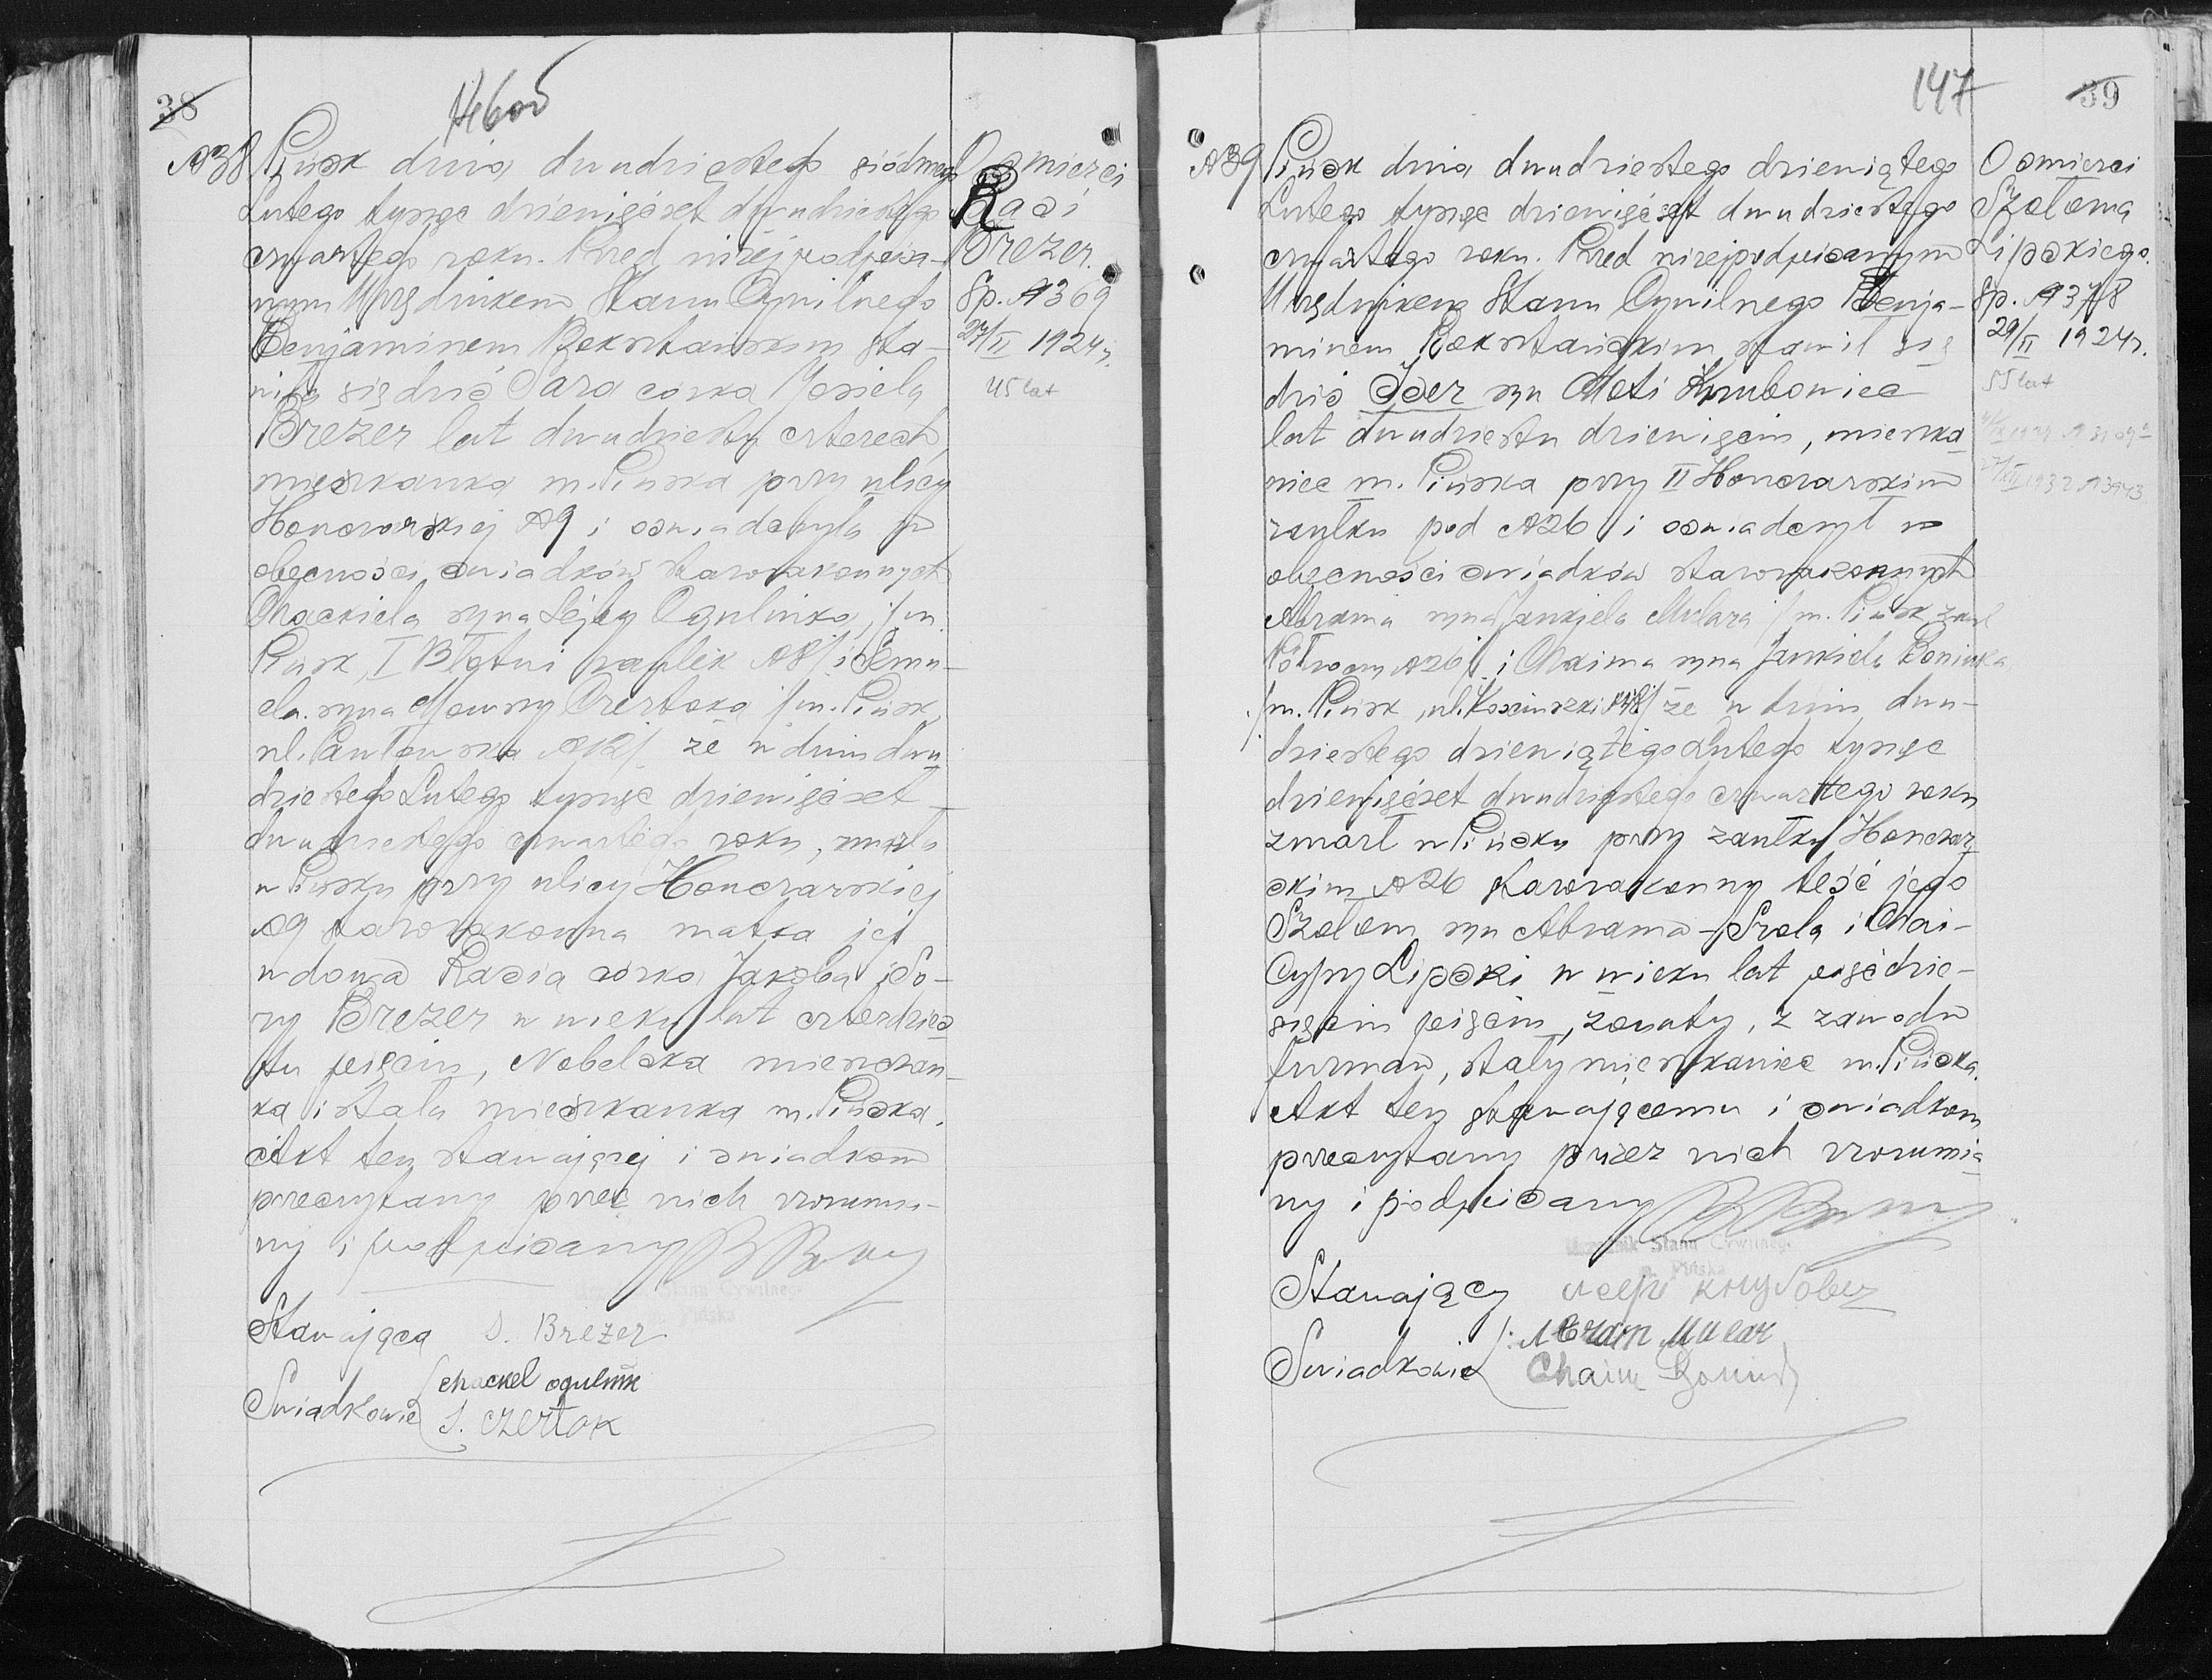 38
146 об
№38 Pińsk dnia dwudziestego siódmego
Lutego tysiąc dziewięćset dwudziestego
czwartego roku. Przed niżej podpisa-
nym Urzędnikiem Stanu Cywilnego
Benjaminem Bokrztańskim sta-
wiła się dziś Sara córka Josiela
Brezer lat dwudziestu czterech,
mieszkanka m. Pińska przy ulicy
Honcarskiej №9 i oświadczyła w
obecności świadków starozakonnych
Chackiela syna Lejby Ogulnika, /m.
Pińsk, I Błotni zaułek №8/ i Szmu-
ela syna Mowszy Czertoka /m. Pińsk,
ul. №12/ że w dniu dwu-
dziestego Lutego tysiąc dziewięćset
dwudziestego czwartego roku, zmarła
w Pińsku przy ulicy Honczarskiej
№9 starozakonna matka jej
wdowa Rasia córka Jakoba i So-
ry Brezer w wieku lat czterdzies
tu pięciu, Nobelska mieszczan-
ka i stała mieszkanka m. Pińska.
Akt ten stawającej i świadkom
przeczytany przez nich zrozumia-
ny i podpisany
Urzędnik Stanu Cywilnego
Pińska
Stawająca S. Brezer
Świadkowie chackel ogulnik
S. czertok
O śmierci
Rasi
Brezer.
Sp. №369
27/II 1924 r.
45 lat
147
39
№39 Pińsk dnia dwudziestego dziewiątego
Lutego tysiąc dziewięćset dwudziestego
czwartego roku. Przed niżej podpisanym
Urzędnikiem Stanu Cywilnego Benja-
minem Bokrztańskim stawił się
dziś Iser syn Moti
lat dwudziestu dziewięciu, mieszka
niec m. Pińska przy II Honczarskim
zaułku pod №26 i oświadczył w
obecności świadków starozakonnych
Abrama syna Jankiela Mulara /m. Pińsk zauł
Północny №26/ i Chaima syna Jankiela
/m. Pińsk, ul. Kosciuszki №18/ że w dniu dwu-
dziestego dziewiątego Lutego tysiąc
dziewięćset dwudziestego czwartego roku
zmarł w Pińsku przy zaułku Honczar
skim №26 starozakonny teść jego
Szołom syn Abrama-Srola i Chai-
Cypy Lipski w wieku lat pięćdzie-
sięciu pięciu, żonaty, z zawodu
furman, stały mieszkaniec m. Pińska.
Akt ten stawającemu i świadkom
przeczytany przez nich zrozumia
ny i podpisany
Urzędnik Stanu Cywilnego
m. Pińska
Stawający
Świadkowie Abram Mular
Chaim
O śmierci
Szołoma
Lipskiego.
Sp. №378
29/II 1924 r.
55 lat